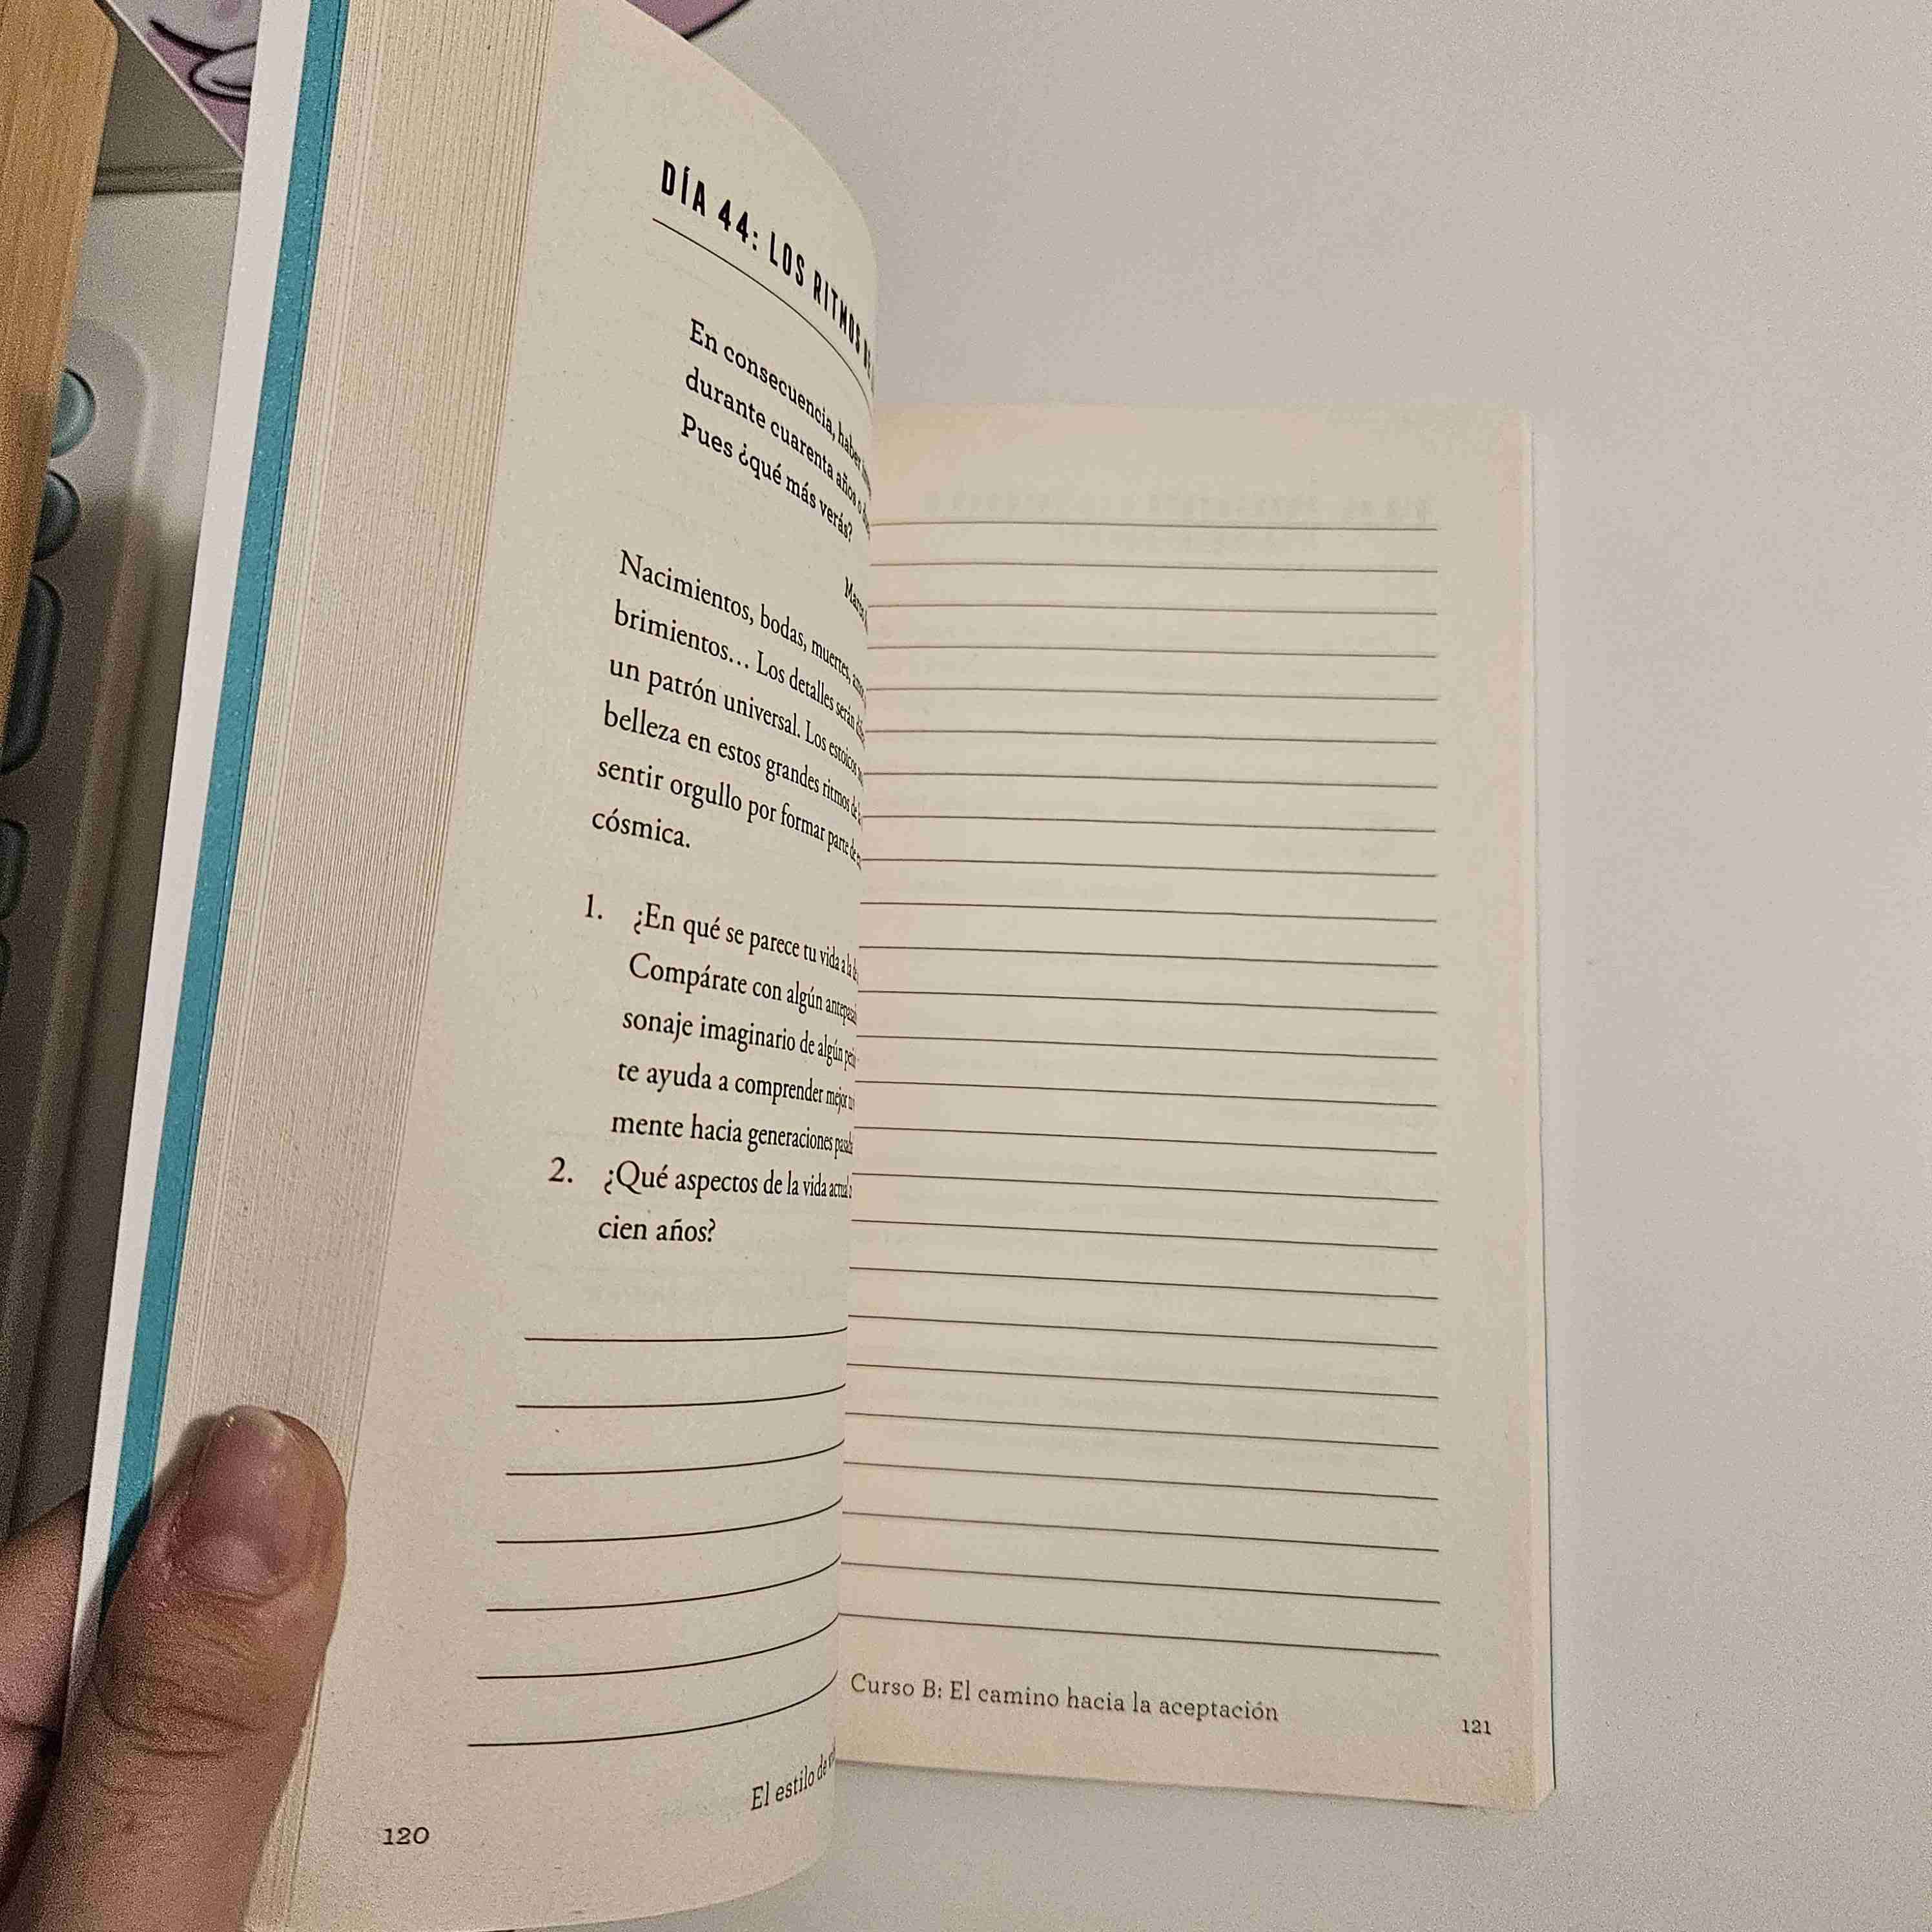 DÍA 44: LOS RITMOS DE
En consecuencia, haber
durante cuarenta años o
Pues ¿qué más verás?
Nacimientos, bodas, muertes,
brimientos... Los detalles serán
un patrón universal. Los estoicos
belleza en estos grandes ritmos de
sentir orgullo por formar parte de
cósmica.
1. ¿En qué se parece tu vida a la
Compárate con algún
sonaje imaginario de algún
te ayuda a comprender mejor
mente hacia generaciones
2. ¿Qué aspectos de la vida actual
cien años?
El estilo de
120
Curso B: El camino hacia la aceptación
121